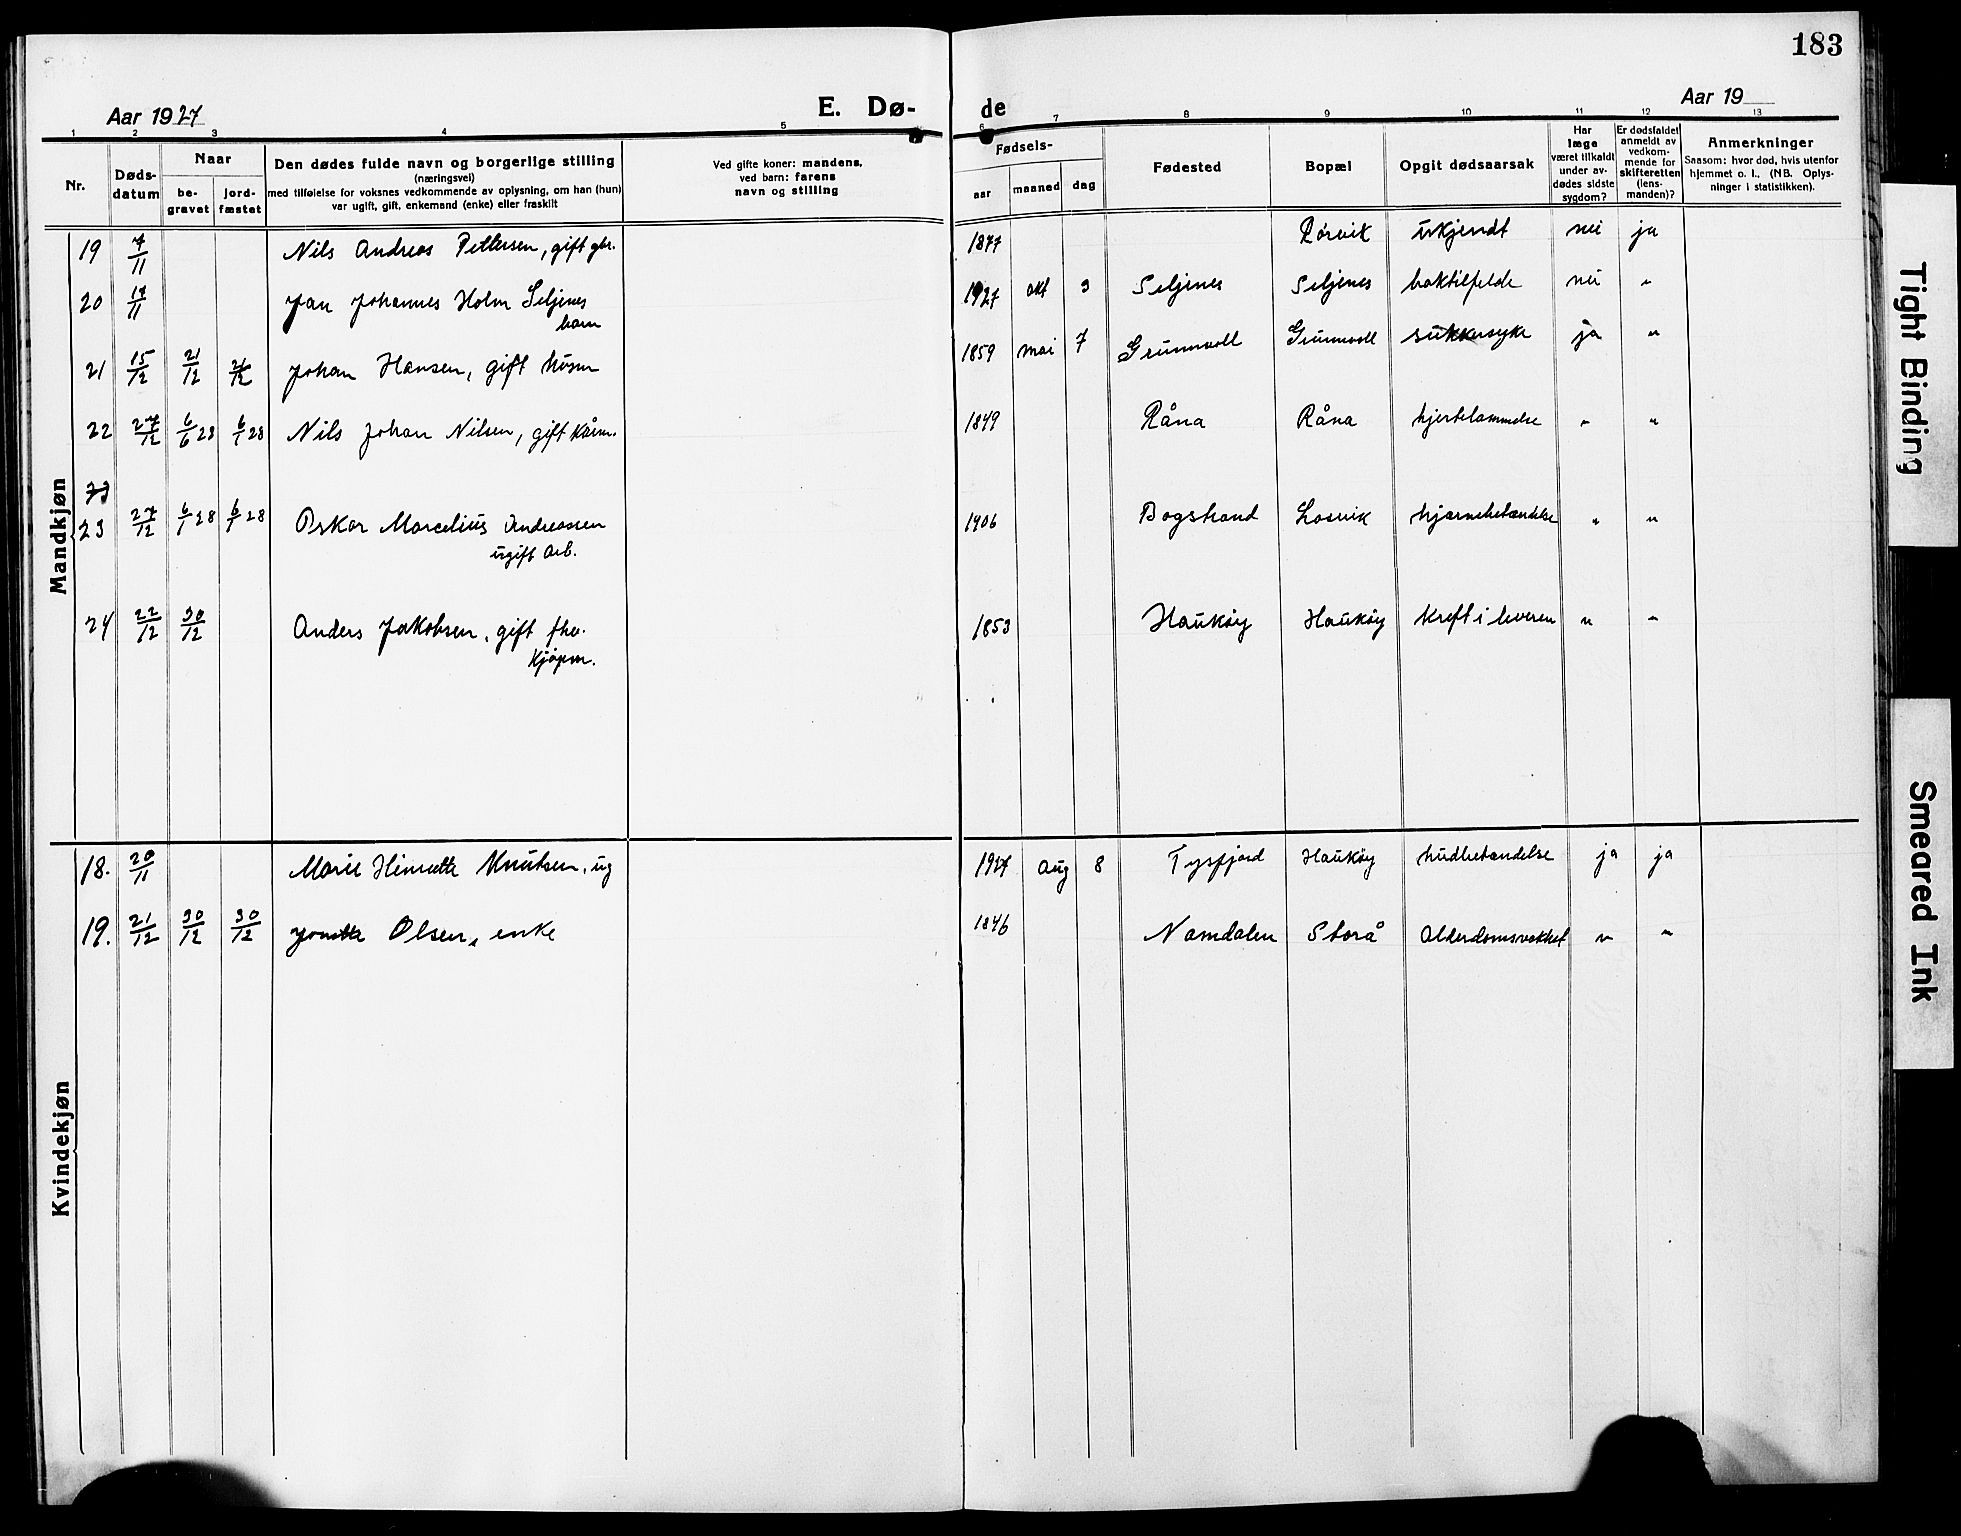 183
Aar 1927
E. Dø-
de
Aar 19
1 2 3 4 5 6 7 8 9 10 11 12 13
Nr.
Døds-
datum
Naar
be-
gravet
jord-
fæstet
Den dødes fulde navn og borgerlige stilling
(næringsvei)
med tilføielse for voksnes vedkommende av oplysning, om han (hun)
var ugift, gift, enkemand (enke) eller fraskilt
Ved gifte koner: mandens,
ved barn: farens
navn og stilling
Fødsels-
aar
maaned
dag
Fødested
Bopæl
Opgit dødsaarsak
Har
læge
været tilkaldt
under av-
dødes sidste
sygdom?
Er dødsfaldet
anmeldt av
vedkom-
mende for
skifteretten
(lens-
manden)?
Anmerkninger
Saasom: hvor død, hvis utenfor
hjemmet o. l., (NB. Oplys-
ninger i statistikken).
Mandkjøn
19 7/11 Nils Andreas Pettersen, gift gbr. 1877 Rørvik ukjendt nei ja
20 17/11 Jan Johannes Holm Seljenes 1927 okt 3 Seljenes Seljenes haktilfelde nei "
barn
21 15/12 21/12 21/12 Johan Hansen, gift husm 1859 mai 7 Grunnvoll Grunnvoll sukkersyke ja "
22 27/12 6/6 28 6/1 28 Nils Johan Nilsen, gift kårm. 1849 Råna Råna hjertelammelse " "
23 27/12 6/1 28 6/1 28 Oskar Marcelius Andreassen 1906 Bogstrand Losvik hjernebetændelse " "
ugift Arb.
24 22/12 30/12 Anders Jakobsen, gift fhv. 1853 Haukøy Haukøy kreft i leveren " "
kjøpm.
Kvindekjøn
18. 20/11 Marie Hinrette Knutsen, ug 1927 Aug 8 Tysfjord Haukøy hudbetændelse ja ja
19. 21/12 30/12 30/12 Jonette Olsen, enke 1846 Namdalen Storå Alderdomsvakhet " "
Tight Binding
Smeared Ink